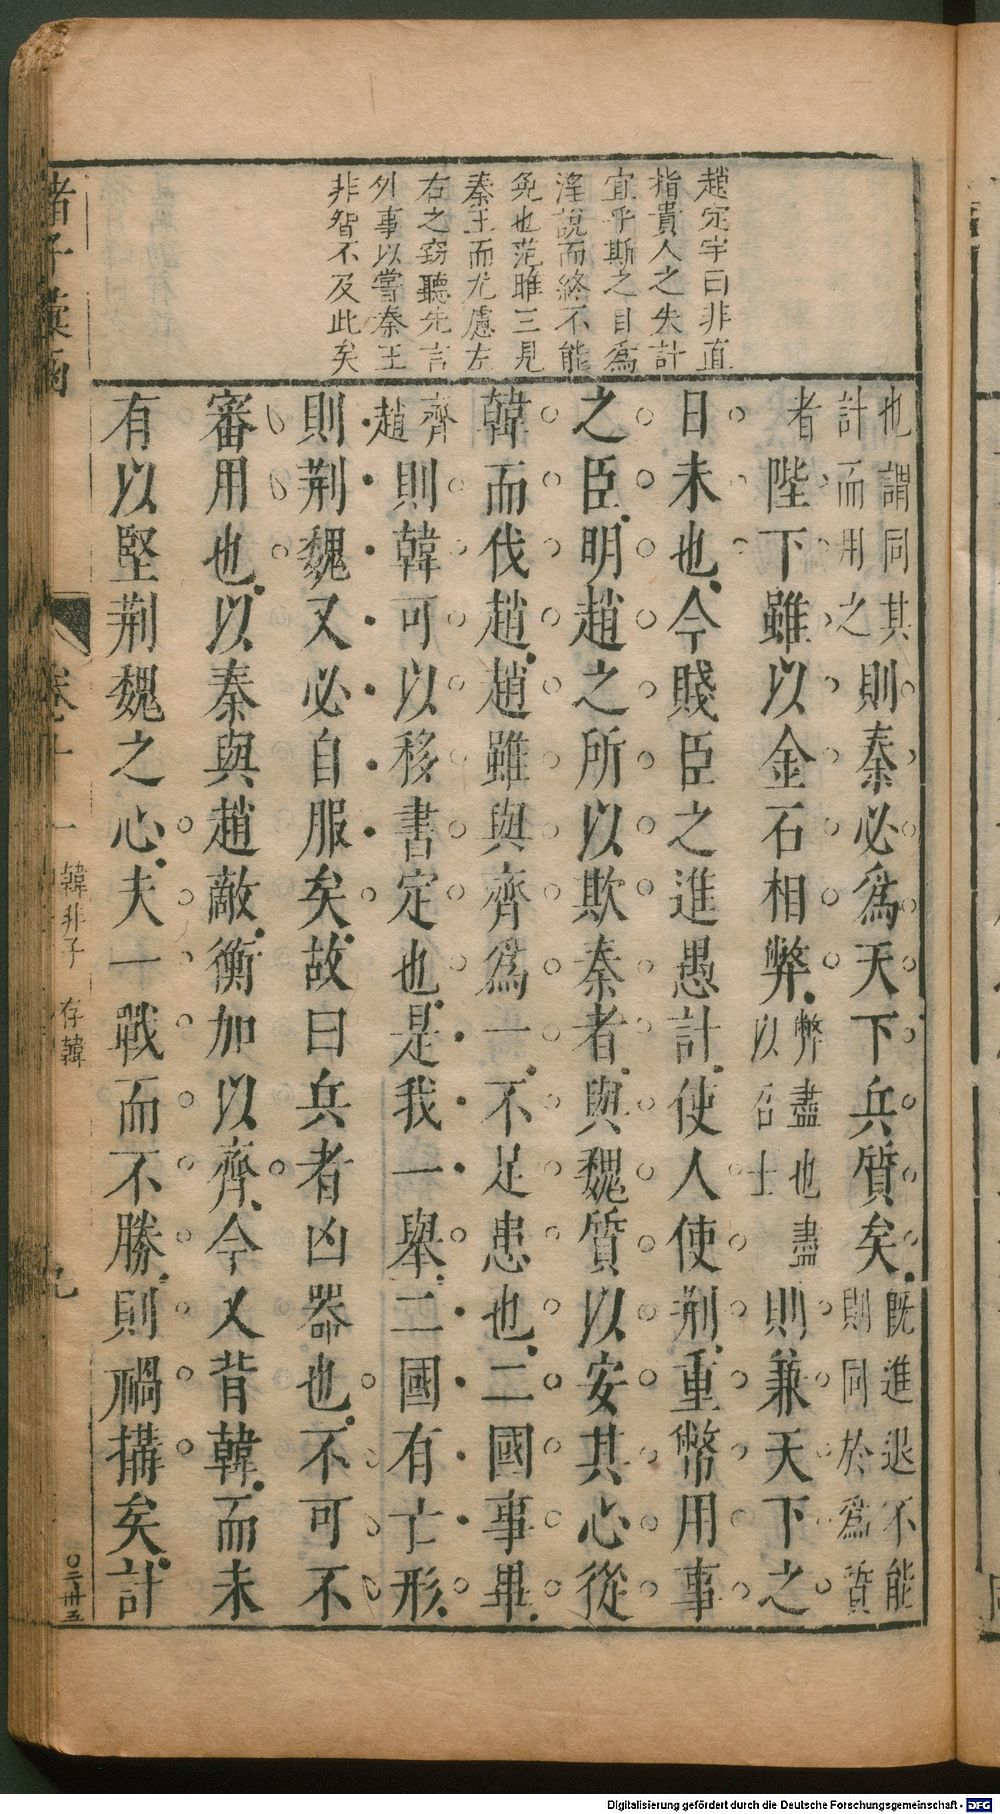 趙定宇曰非直
指貴人之失計
宜乎斯之目爲
淫說而終不能
免也范雎三見
秦王而尤慮左
右之竊聽先言
外事以嘗秦王
非智不及此矣
也謂同其計而用之則秦必爲天下兵質矣旣進退不能則同於爲質
者陛下雖以金石相弊弊盡也盡以召士則兼天下之
日未也今賤臣之進愚計使人使荆重幣用事
之臣明趙之所以欺秦者與魏質以安其心從
韓而伐趙趙雖與齊爲一不足患也二國事畢
齊趙則韓可以移書定也是我一舉二國有亡形
則荆魏又必自服矣故曰兵者凶器也不可不
審用也以秦與趙敵衡加以齊今又背韓而未
有以堅荆魏之心夫一戰而不勝則禍搆矣計
諸子彙函
卷十一
韓非子 存韓
〇二卅五
Digitalisierung gefördert durch die Deutsche Forschungsgemeinschaft - DFG